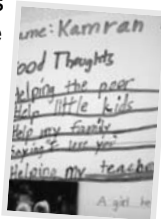 ame: Kamran
ood Thoughts
elping the poor
Help little kids
Help my family
Saying I love you
Helping my teache
A girl he